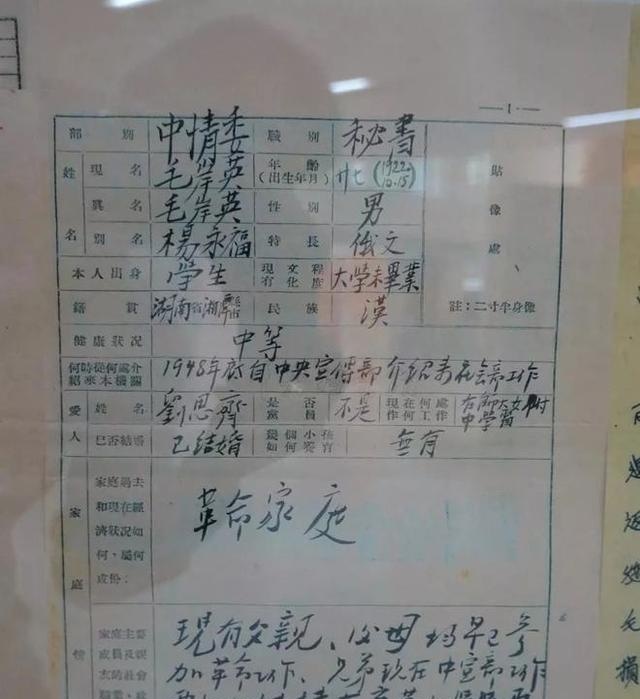 — 1 ·—
部別 中情委 職別 秘書
姓名 現名 毛岸英 年齡(出生年月) 廿七(1922.10.15) 貼像處
異名 毛岸英 性別 男
別名 楊永福 特長 俄文
本人出身 学生 現有文化程度 大学未畢業
籍貫 湖南省湘潭 民族 漢 註:二寸半身像
健康狀況 中等
何時從何處介紹來本機關 1948年底自中央宣傳部介紹来社会部工作
愛人 姓名 劉思齊 是否黨員 不是 現在何處作何工作 中学
已否結婚 已结婚 幾個小孩如何養育 無有
家庭情 家庭過去和現在經濟狀況如何,屬何成份: 革命家庭
家庭主要成員及親友的社會職業、政 現有父親、父母均早已参
加革命工作、兄弟現在中宣部工作